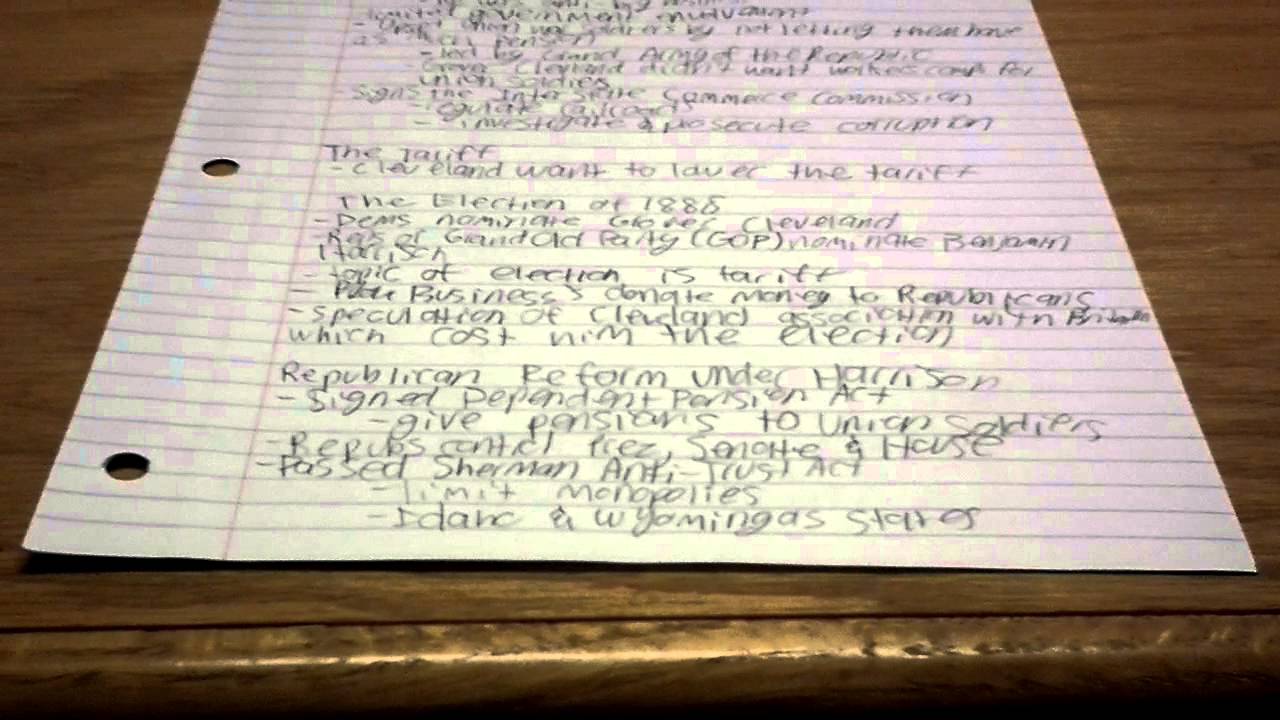 limited government involvement
war by not letting them have
pension
- led by Grand Army of the Republic
- Grover Cleveland didn't want workers comp for
union soldiers
Signs the Inter State Commerce Commission
- regulate railroads
- investigate & prosecute corruption
The Tariff
- Cleveland want to lower the tariff
The Election of 1888
- Dems nominate Grover Cleveland
- Reps or Grand Old Party (GOP) nominate Benjamin
Harrison
- topic of election is tariff
- Business's donate money to Republicans
- speculation of Cleveland association with Britain
which cost him the election
Republican Reform under Harrison
- Signed Dependent Pension Act
- give pensions to Union Soldiers
- Repubs control Prez, Senate & House
- Passed Sherman Anti-Trust Act
- limit monopolies
- Idaho & Wyoming as states